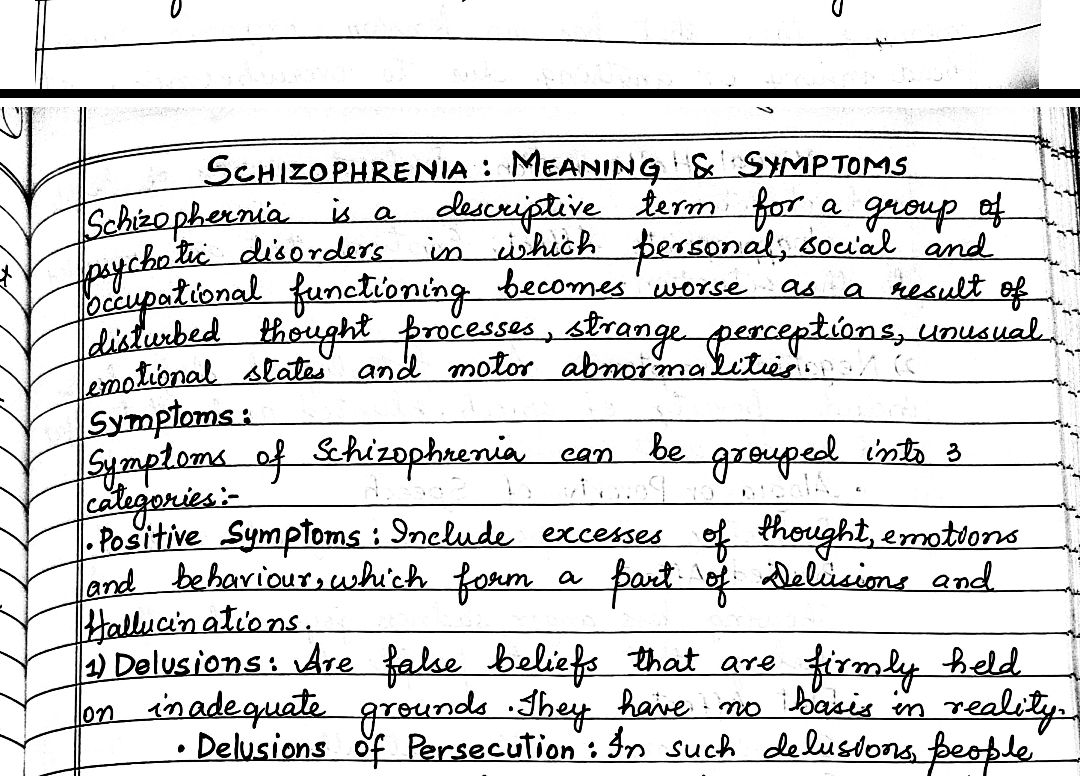 SCHIZOPHRENIA : MEANING & SYMPTOMS
Schizophernia is a descriptive term for a group of
psychotic disorders in which personal, social and
occupational functioning becomes worse as a result of
disturbed thought processes, strange perceptions, unusual
emotional states and motor abnormalities.
Symptoms:
Symptoms of Schizophrenia can be grouped into 3
categories:-
• Positive Symptoms : Include excesses of thought, emotions
and behaviour, which form a part of Delusions and
Hallucinations.
1) Delusions: Are false beliefs that are firmly held
on inadequate grounds. They have no basis in reality.
• Delusions of Persecution : In such delusions, people